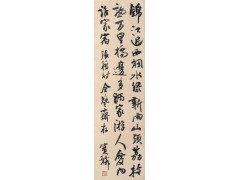 錦江近西烟水綠新雨山頭荔枝
熟万里橋邊多酒家游人愛向
誰家宿 張籍詩